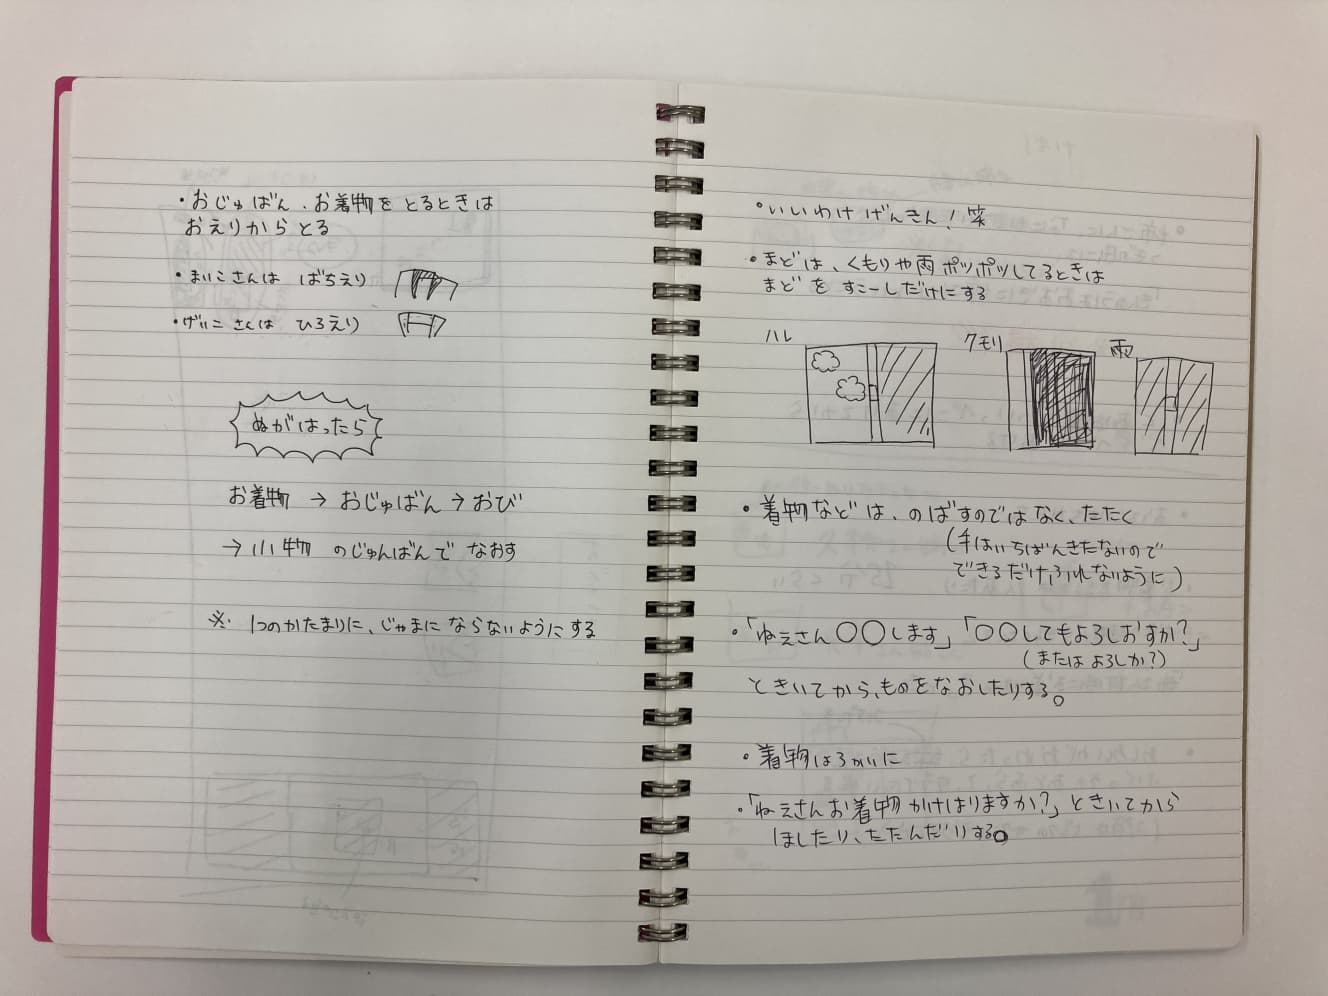 ・おじゅばん、お着物をとるときは
おえりからとる
・まいこさんは ばちえり
・げいこさんは ひろえり
ぬがはったら
お着物→おじゅばん→おび
→小物のじゅんばんでなおす
※ 1つのかたまりに、じゃまにならないようにする
・いいわけげんきん!笑
・まどは、くもりや雨ポツポツしてるときは
まどをすこーしだけにする
ハレ
クモリ
雨
・着物などは、のばすのではなく、たたく
(手はいちばんきたないので
できるだけふれないように)
・「ねえさん〇〇します」「〇〇してもよろしおすか?」
(またはよろしか?)
ときいてから、ものをなおしたりする。
・着物はろかいに
・「ねえさんお着物かけはりますか?」ときいてから
ほしたり、たたんだりする。